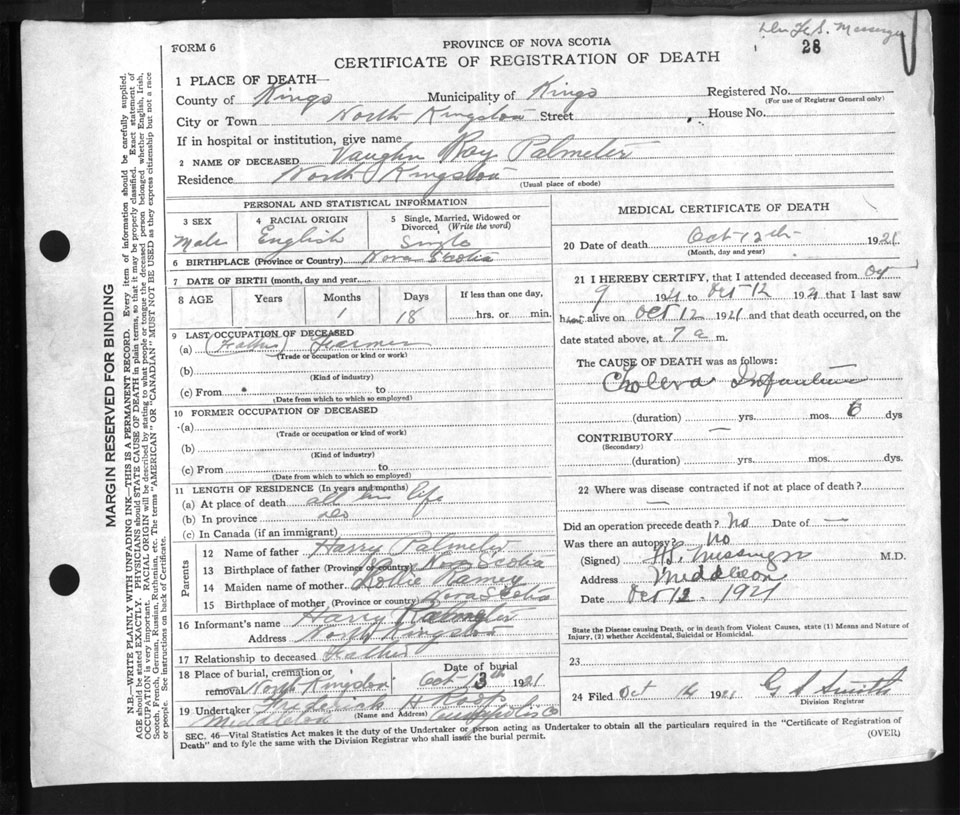 Dr F. S. Messenger
28
FORM 6
PROVINCE OF NOVA SCOTIA
CERTIFICATE OF REGISTRATION OF DEATH
MARGIN RESERVED FOR BINDING
N.B.—WRITE PLAINLY WITH UNFADING INK—THIS IS A PERMANENT RECORD. Every item of information should be carefully supplied.
AGE should be stated EXACTLY. PHYSICIANS should STATE CAUSE OF DEATH in plain terms, so that it may be properly classified. Exact statement of
OCCUPATION is very important. RACIAL ORIGIN will be described by stating to what people or tongue the deceased person belonged whether English, Irish,
Scotch, French, German, Russian, Ruthenian, etc. The terms "AMERICAN" OR "CANADIAN" MUST NOT BE USED as they express citizenship but not a race
of people. See instructions on back of Certificate.
1 PLACE OF DEATH—
County of Kings Municipality of Kings Registered No.
(For use of Registrar General only)
City or Town North Kingston Street House No.
If in hospital or institution, give name
2 NAME OF DECEASED Vaughn Roy Palmeter
Residence North Kingston
(Usual place of abode)
PERSONAL AND STATISTICAL INFORMATION
3 SEX Male
4 RACIAL ORIGIN English
5 Single, Married, Widowed or Divorced (Write the word) Single
6 BIRTHPLACE (Province or Country) Nova Scotia
7 DATE OF BIRTH (month, day and year)
8 AGE Years Months Days If less than one day,
1 18 hrs. or min.
9 LAST OCCUPATION OF DECEASED
(a) (Father) Farmer
(Trade or occupation or kind of work)
(b)
(Kind of industry)
(c) From to
(Date from which to which so employed)
10 FORMER OCCUPATION OF DECEASED
(a)
(Trade or occupation or kind of work)
(b)
(Kind of industry)
(c) From to
(Date from which to which so employed)
11 LENGTH OF RESIDENCE (In years and months)
(a) At place of death all his life
(b) In province do
(c) In Canada (if an immigrant)
Parents
12 Name of father Harry Palmeter
13 Birthplace of father (Province or country) Nova Scotia
14 Maiden name of mother Lottie Ramey
15 Birthplace of mother (Province or country) Nova Scotia
16 Informant's name Harry Palmeter
Address North Kingston
17 Relationship to deceased Father
18 Place of burial, cremation or Date of burial
removal North Kingston Oct 13th 1921
19 Undertaker Frederick H
Middleton (Name and Address) Annapolis Co
SEC. 46—Vital Statistics Act makes it the duty of the Undertaker or person acting as Undertaker to obtain all the particulars required in the "Certificate of Registration of
Death" and to fyle the same with the Division Registrar who shall issue the burial permit.
(OVER)
MEDICAL CERTIFICATE OF DEATH
20 Date of death Oct 12th 1921
(Month, day and year)
21 I HEREBY CERTIFY, that I attended deceased from Oct
9 1921 to Oct 12 1921 that I last saw
him alive on Oct 12 1921 and that death occurred, on the
date stated above, at 7 a m.
The CAUSE OF DEATH was as follows:
Cholera Infantum
(duration) yrs. mos. 6 dys
CONTRIBUTORY —
(Secondary)
(duration) yrs. mos. dys
22 Where was disease contracted if not at place of death?
—
Did an operation precede death? No Date of —
Was there an autopsy? No
(Signed) F. S. Messenger M.D.
Address Middleton
Date Oct 12 1921
State the Disease causing Death, or in death from Violent Causes, state (1) Means and Nature of
Injury, (2) whether Accidental, Suicidal or Homicidal.
23
24 Filed Oct 14 1921 G S Smith
Division Registrar